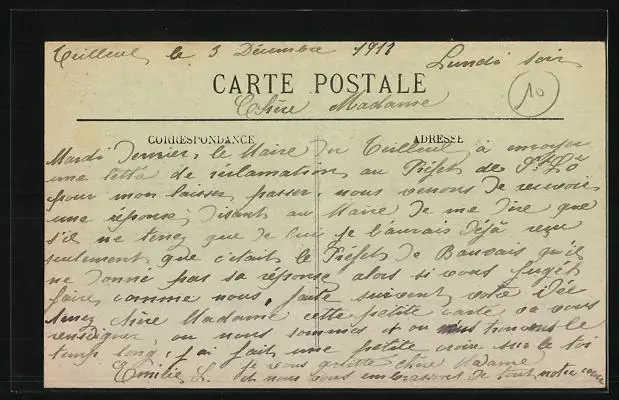 Teilleul, le 3 Décembre 1911 Lundi soir
10
CARTE POSTALE
Chère Madame
CORRESPONDANCE ADRESSE
Mardi dernier, le Maire du Teilleul à envoyer
une lettre de réclamation au Préfet de St Lô
pour mon laisser passer, nous venons de recevoir
une réponse, disant au Maire de me dire que
s'il ne tenez que de lui je l'aurais déjà reçu
seulement que c'était le Préfet de Bauvais qu'il
ne donné pas sa réponse alors si vous
faire comme nous, faite suivant votre idée
tenez chère Madame cette petite carte va vous
renseigner, ou nous sommes et ou nous trouvons le
temps long, j'ai fait une petite croix sur le toi
je vous quitte chère Madame
Emilie L. et nous vous embrassons de tout notre cœur